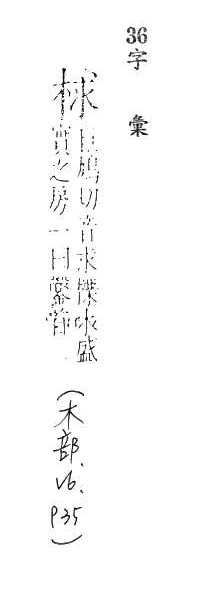 36 字彙
梂
巨鳩切音求櫟盛
實之房一曰
(木部.v6.p35)